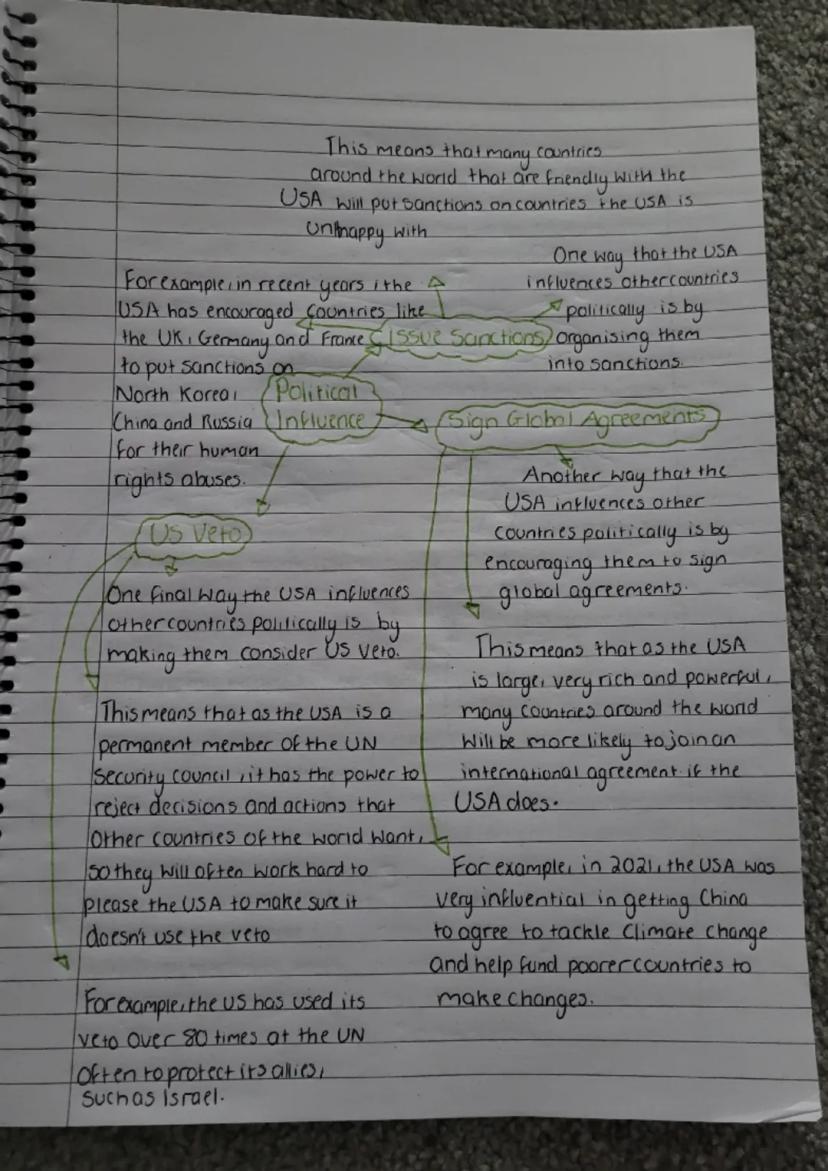 This means that many countries
around the world that are friendly with the
USA will put sanctions on countries the USA is
unhappy with
One way that the USA
influences other countries
politically is by
organising them
into sanctions.
For example, in recent years, the
USA has encouraged countries like
the UK, Germany and France
to put sanctions on
North Korea,
China and Russia
for their human
rights abuses.
Issue Sanctions
Political
Influence
Sign Global Agreements
Another way that the
USA influences other
countries politically is by
encouraging them to sign
global agreements.
This means that as the USA
is large, very rich and powerful,
many countries around the world
will be more likely to join an
international agreement if the
USA does.
For example, in 2021, the USA was
very influential in getting China
to agree to tackle Climate change
and help fund poorer countries to
make changes.
US Veto
One final way the USA influences
other countries politically is by
making them consider US veto.
This means that as the USA is a
permanent member of the UN
Security council, it has the power to
reject decisions and actions that
other countries of the world want,
so they will often work hard to
please the USA to make sure it
doesn't use the veto
For example, the US has used its
veto over 80 times at the UN
often to protect its allies,
such as Israel.